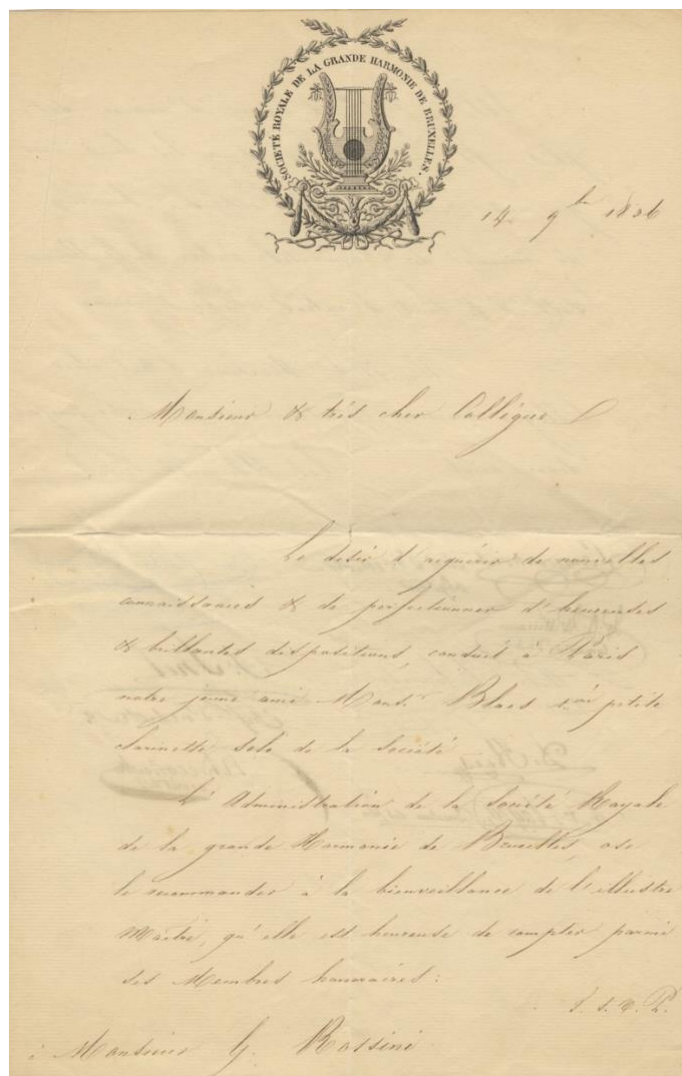 SOCIÉTÉ ROYALE DE LA GRANDE HARMONIE DE BRUXELLES.
14 9bre 1836
Monsieur & très cher Collègue
Le désir d'aquérir de nouvelles
connaissances & de perfectionner d'heureuses
& brillantes dispositions, conduit à Paris
notre jeune ami Monsr. Blaes petite
clarinette solo de la Société
L'Administration de la Société Royale
de la grande Harmonie de Bruxelles, ose
le recommander à la bienveillance de l'illustre
Maître, qu'elle est heureuse de compter parmi
ses Membres honoraires:
T. S. V. P.
à Monsieur G. Rossini